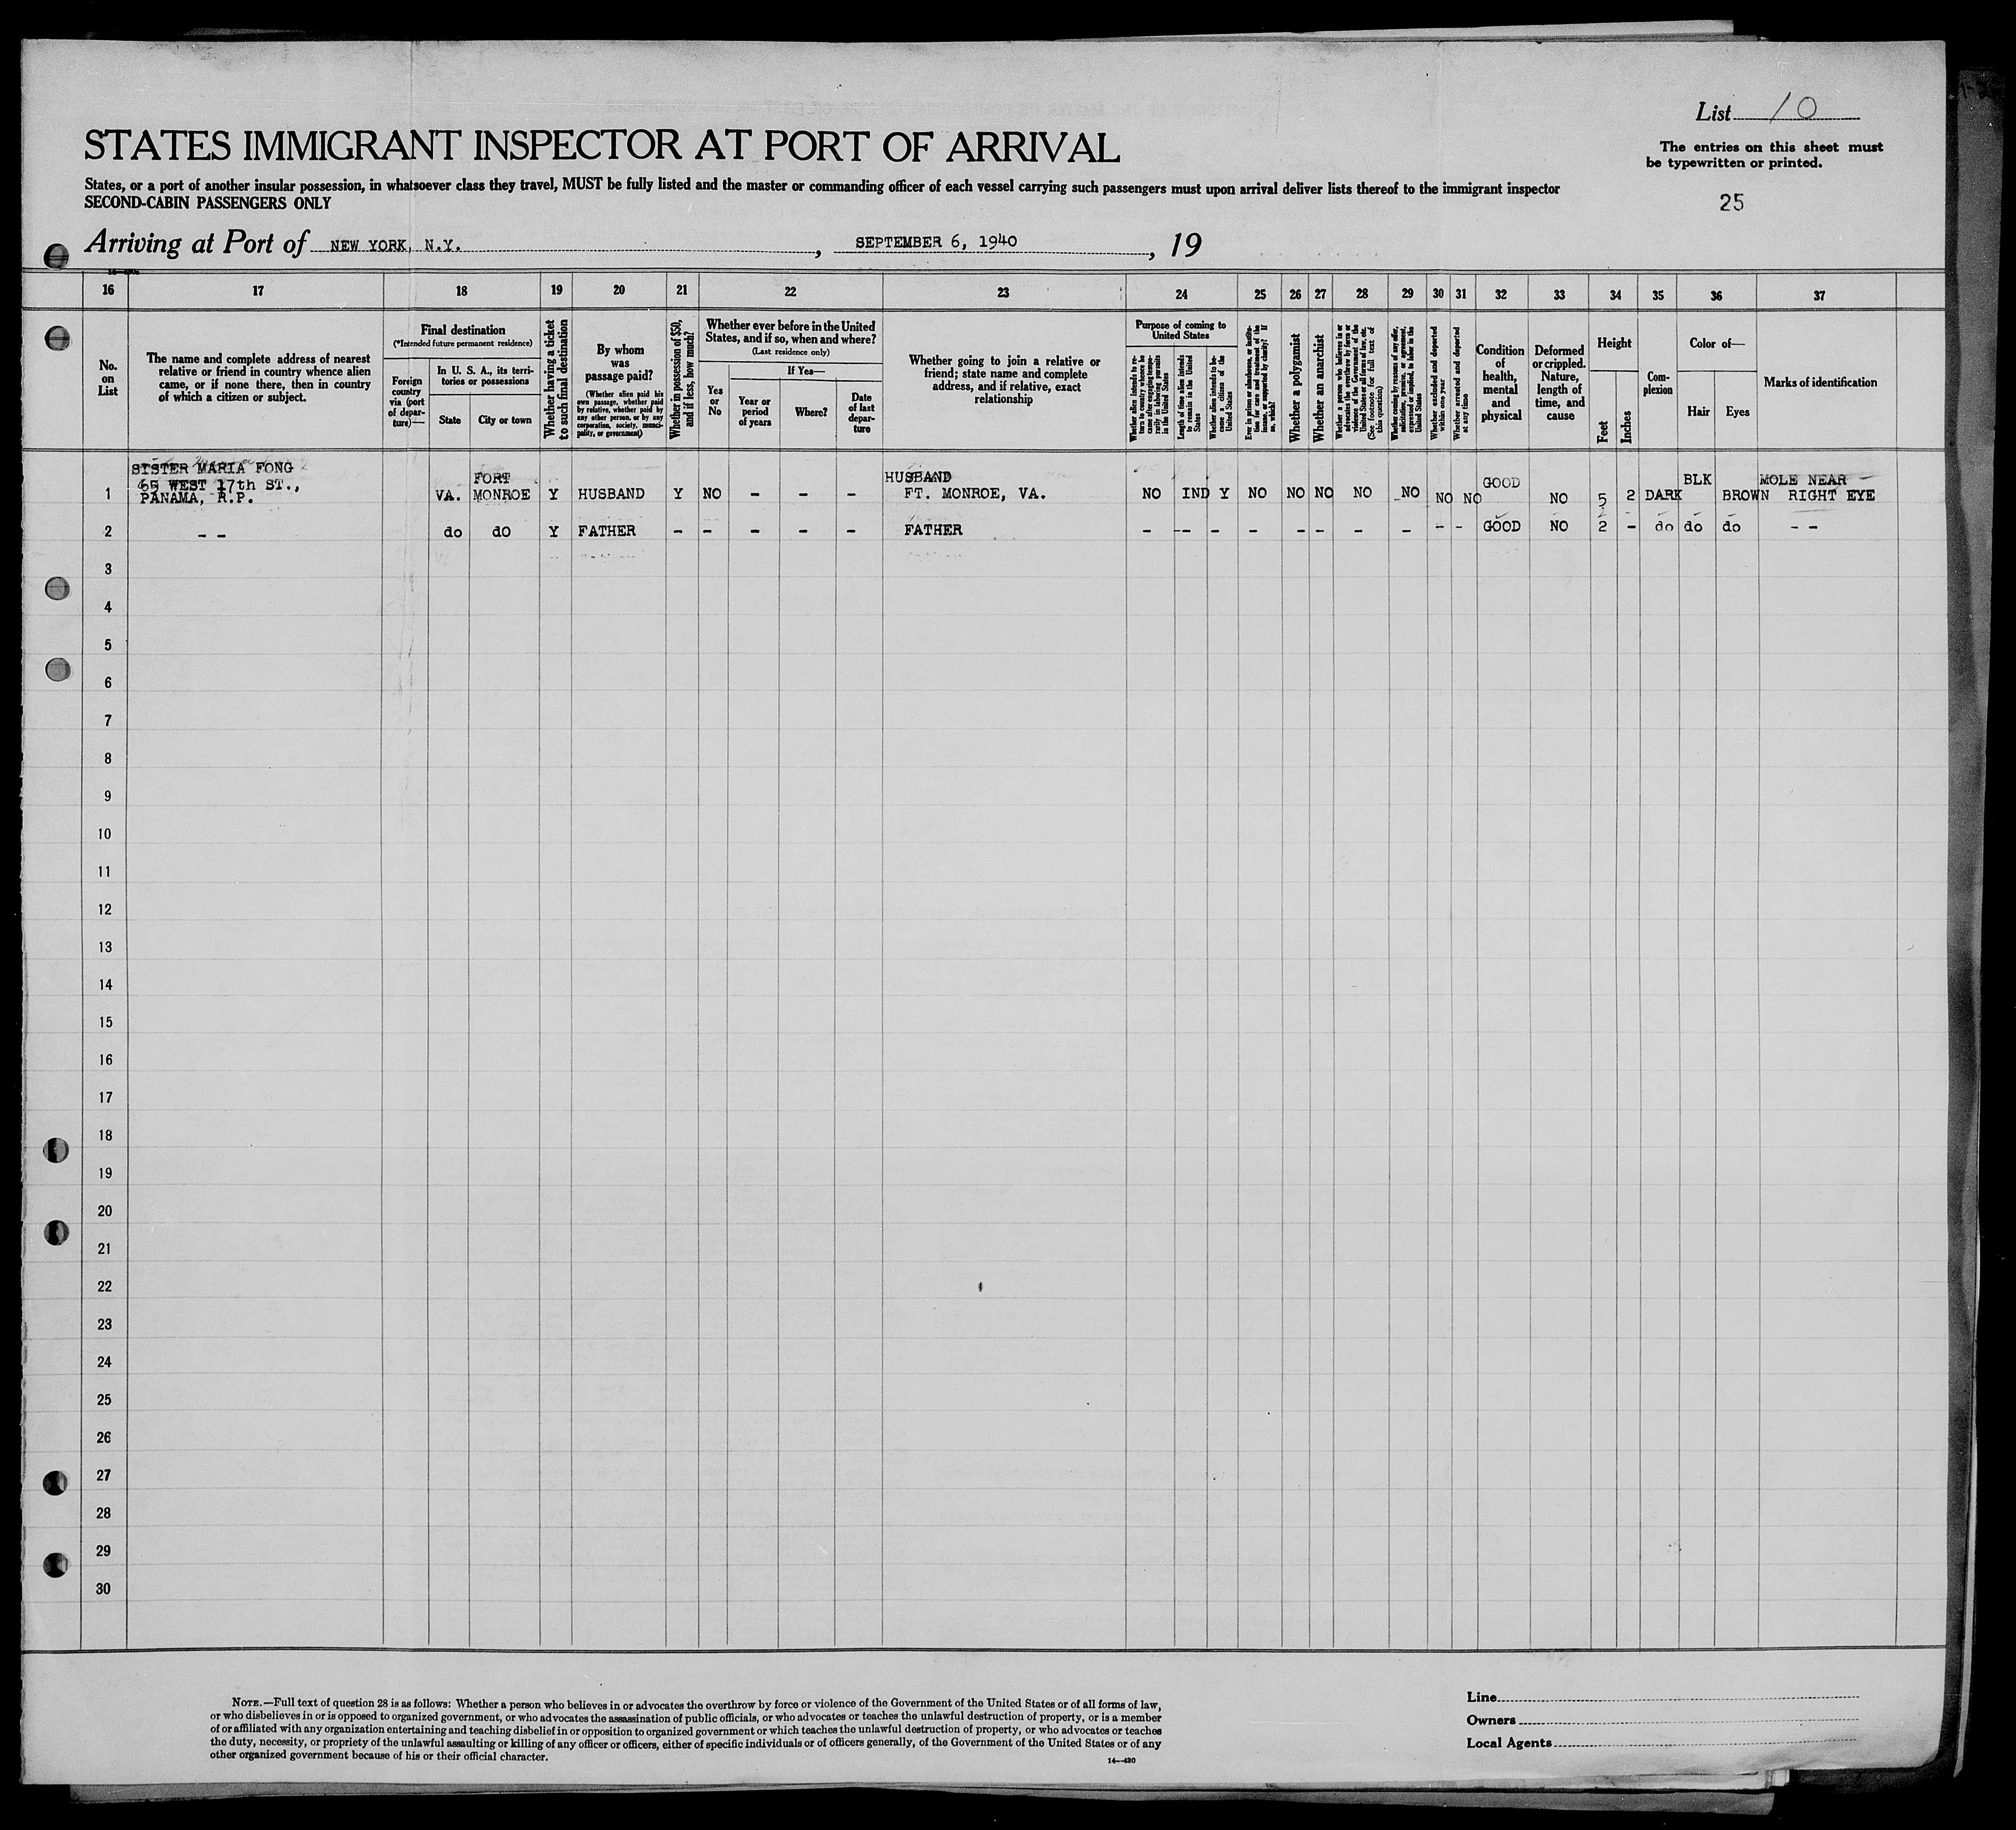 List 10
STATES IMMIGRANT INSPECTOR AT PORT OF ARRIVAL
The entries on this sheet must
be typewritten or printed.
States, or a port of another insular possession, in whatsoever class they travel, MUST be fully listed and the master or commanding officer of each vessel carrying such passengers must upon arrival deliver lists thereof to the immigrant inspector
SECOND-CABIN PASSENGERS ONLY
25
Arriving at Port of NEW YORK, N.Y. , SEPTEMBER 6, 1940 , 19
16 17 18 19 20 21 22 23 24 25 26 27 28 29 30 31 32 33 34 35 36 37
No. on List
The name and complete address of nearest
relative or friend in country whence alien
came, or if none there, then in country
of which a citizen or subject.
Final destination
(*Intended future permanent residence)
Foreign country via (port of departure)—
In U. S. A., its territories or possessions
State
City or town
Whether having a ticket to such final destination
By whom was passage paid?
(Whether alien paid his own passage, whether paid by relative, whether paid by any other person, or by any corporation, society, municipality, or government)
Whether in possession of $50, and if less, how much?
Whether ever before in the United States, and if so, when and where?
(Last residence only)
Yes or No
If Yes—
Year or period of years
Where?
Date of last departure
Whether going to join a relative or
friend; state name and complete
address, and if relative, exact
relationship
Purpose of coming to United States
Whether alien intends to return to country whence he came after engaging temporarily in laboring pursuits in the United States
Length of time alien intends to remain in the United States
Whether alien intends to become a citizen of the United States
Ever in prison or almshouse, or institution for care and treatment of the insane, or supported by charity? If so, which?
Whether a polygamist
Whether an anarchist
Whether a person who believes in or advocates the overthrow by force or violence of the Government of the United States or all forms of law, etc. (See footnote for full text of this question)
Whether coming by reason of any offer, solicitation, promise, or agreement, expressed or implied, to labor in the United States
Whether excluded and deported within one year
Whether arrested and deported at any time
Condition of health, mental and physical
Deformed or crippled. Nature, length of time, and cause
Height
Feet
Inches
Complexion
Color of—
Hair
Eyes
Marks of identification
SISTER MARIA FONG
65 WEST 17th ST.,
PANAMA, R.P.
1 VA. FORT MONROE Y HUSBAND Y NO - - - HUSBAND FT. MONROE, VA. NO IND Y NO NO NO NO NO NO NO GOOD NO 5 2 DARK BLK BROWN MOLE NEAR RIGHT EYE
2 - - do do Y FATHER - - - - - FATHER - -- - - - - - - - - GOOD NO 2 - do do do - -
3
4
5
6
7
8
9
10
11
12
13
14
15
16
17
18
19
20
21
22
23
24
25
26
27
28
29
30
NOTE.—Full text of question 28 is as follows: Whether a person who believes in or advocates the overthrow by force or violence of the Government of the United States or of all forms of law,
or who disbelieves in or is opposed to organized government, or who advocates the assassination of public officials, or who advocates or teaches the unlawful destruction of property, or is a member
of or affiliated with any organization entertaining and teaching disbelief in or opposition to organized government or which teaches the unlawful destruction of property, or who advocates or teaches
the duty, necessity, or propriety of the unlawful assaulting or killing of any officer or officers, either of specific individuals or of officers generally, of the Government of the United States or of any
other organized government because of his or their official character.
14—430
Line
Owners
Local Agents